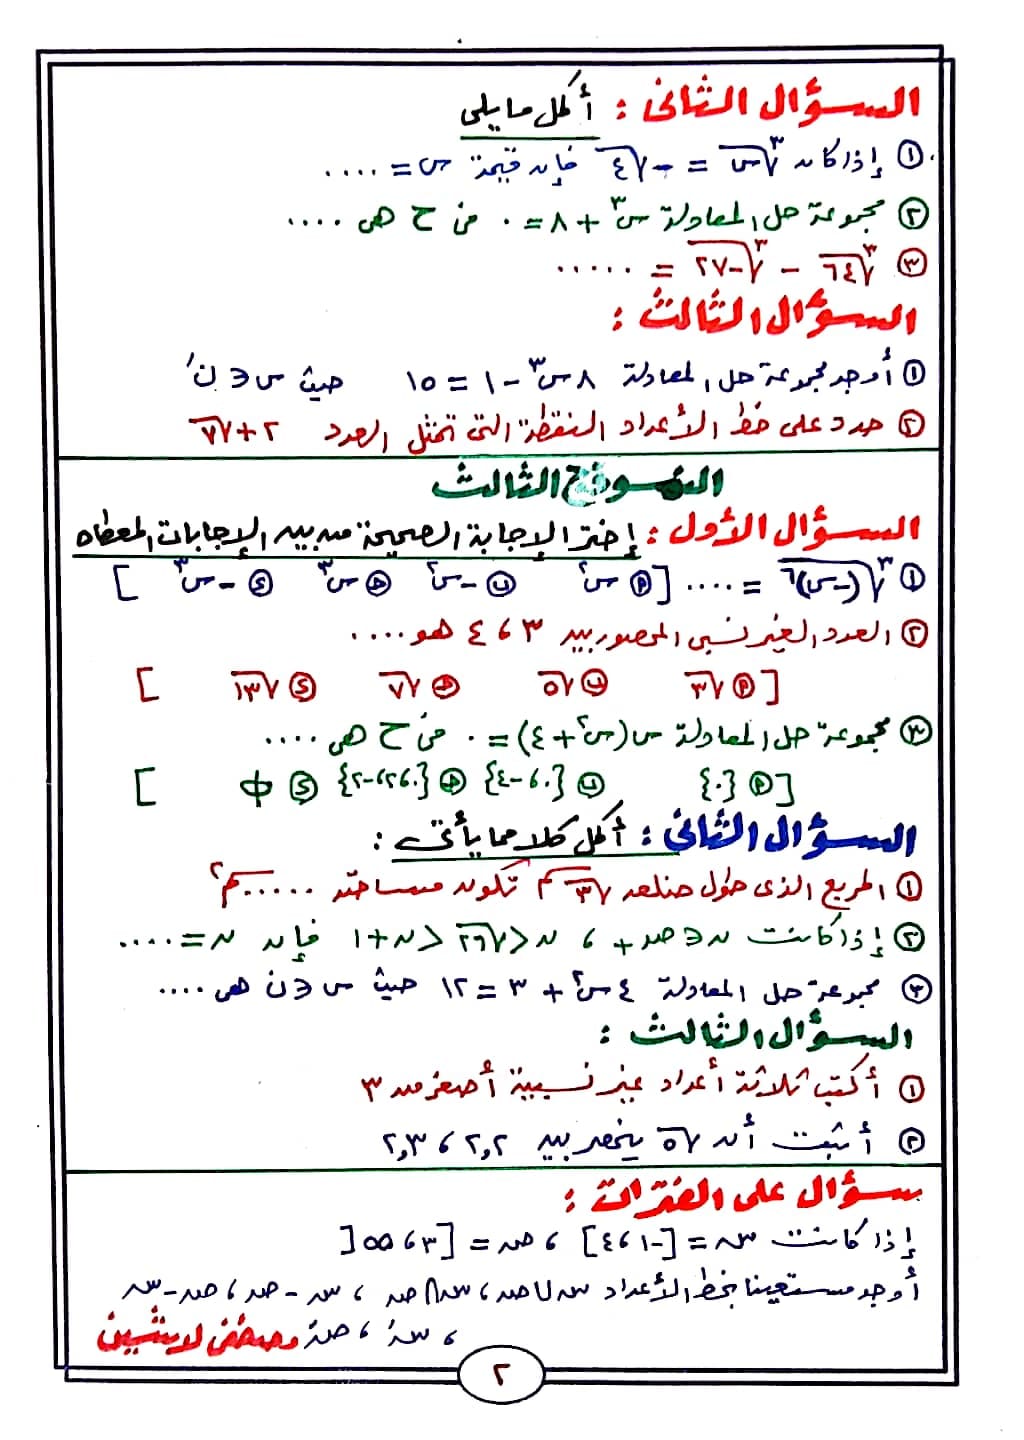 السؤال الثانى : أكمل ما يلى
① إذا كان ∛س = -√٤ فإن قيمة س = ....
② مجموعة حل المعادلة س³ + ٨ = ٠ فى ح هى ....
③ ∛٦٤ - ∛-٢٧ = .....
السؤال الثالث :
① أوجد مجموعة حل المعادلة ٨س³ - ١ = ١٥ حيث س ∋ نَ
② حدد على خط الأعداد النقطة التى تمثل العدد ٢ + √٧
النموذج الثالث
السؤال الأول : إختر الإجابة الصحيحة من بين الإجابات المعطاه
① ∛(-س)⁶ = .... [ Ⓐ س² ⓑ -س² ⓒ س³ ⓓ -س³ ]
② العدد الغير نسبى المحصور بين ٣ ، ٤ هو ....
[ Ⓐ √٣ ⓑ √٥ ⓒ √٧ ⓓ √١٣ ]
③ مجموعة حل المعادلة س(س² + ٤) = ٠ فى ح هى ....
[ Ⓐ {٠} ⓑ {٠ ، -٤} ⓒ {٠ ، ٢ ، -٢} ⓓ φ ]
السؤال الثانى : أكمل كلا مما يأتى :
① المربع الذى طول ضلعه √٣ سم تكون مساحته ..... سم²
② إذا كانت ن ∋ صـ+ ، ن < √٢٦ < ن + ١ فإن ن = ....
③ مجموعة حل المعادلة ٤س² + ٣ = ١٢ حيث س ∋ ن هى ....
السؤال الثالث :
① أكتب ثلاثة أعداد غير نسبية أصغر من ٣
② أثبت أن √٥ ينحصر بين ٢,٢ ، ٢,٣
سؤال على الفترات :
إذا كانت سـ = [-١ ، ٤] ، صـ = [٣ ، ∞[
أوجد مستعينا بخط الأعداد سـ ∪ صـ ، سـ ∩ صـ ، سـ - صـ ، صـ - سـ
، سـَ ، صـَ مصطفى لاشين
٢